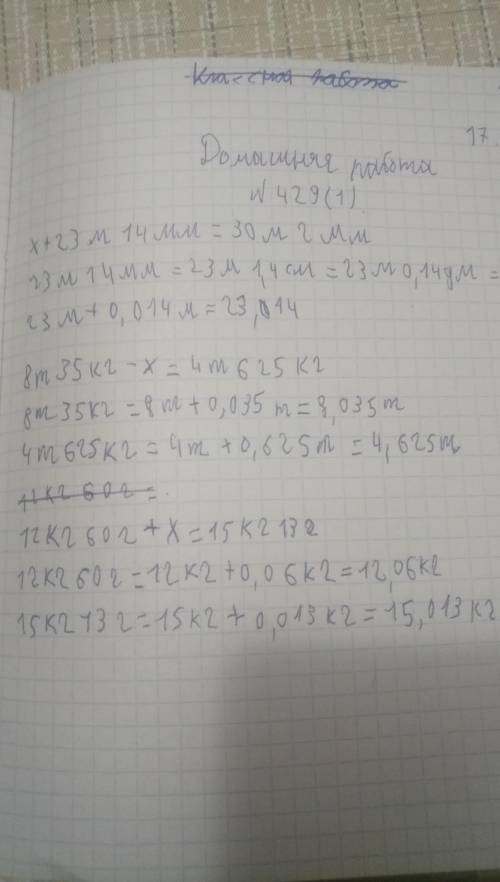 Классная работа
17.
Домашняя работа
№ 429(1)
x+23 м 14 мм = 30 м 2 мм
23 м 14 мм = 23 м 1,4 см = 23 м 0,14 дм =
23 м + 0,014 м = 23,014
8т 35 кг - x = 4т 625 кг
8т 35 кг = 8т + 0,035 т = 8,035 т
4т 625 кг = 4т + 0,625 т = 4,625 т
12 кг 60 г =
12 кг 60 г + x = 15 кг 13 г
12 кг 60 г = 12 кг + 0,06 кг = 12,06 кг
15 кг 13 г = 15 кг + 0,013 кг = 15,013 кг